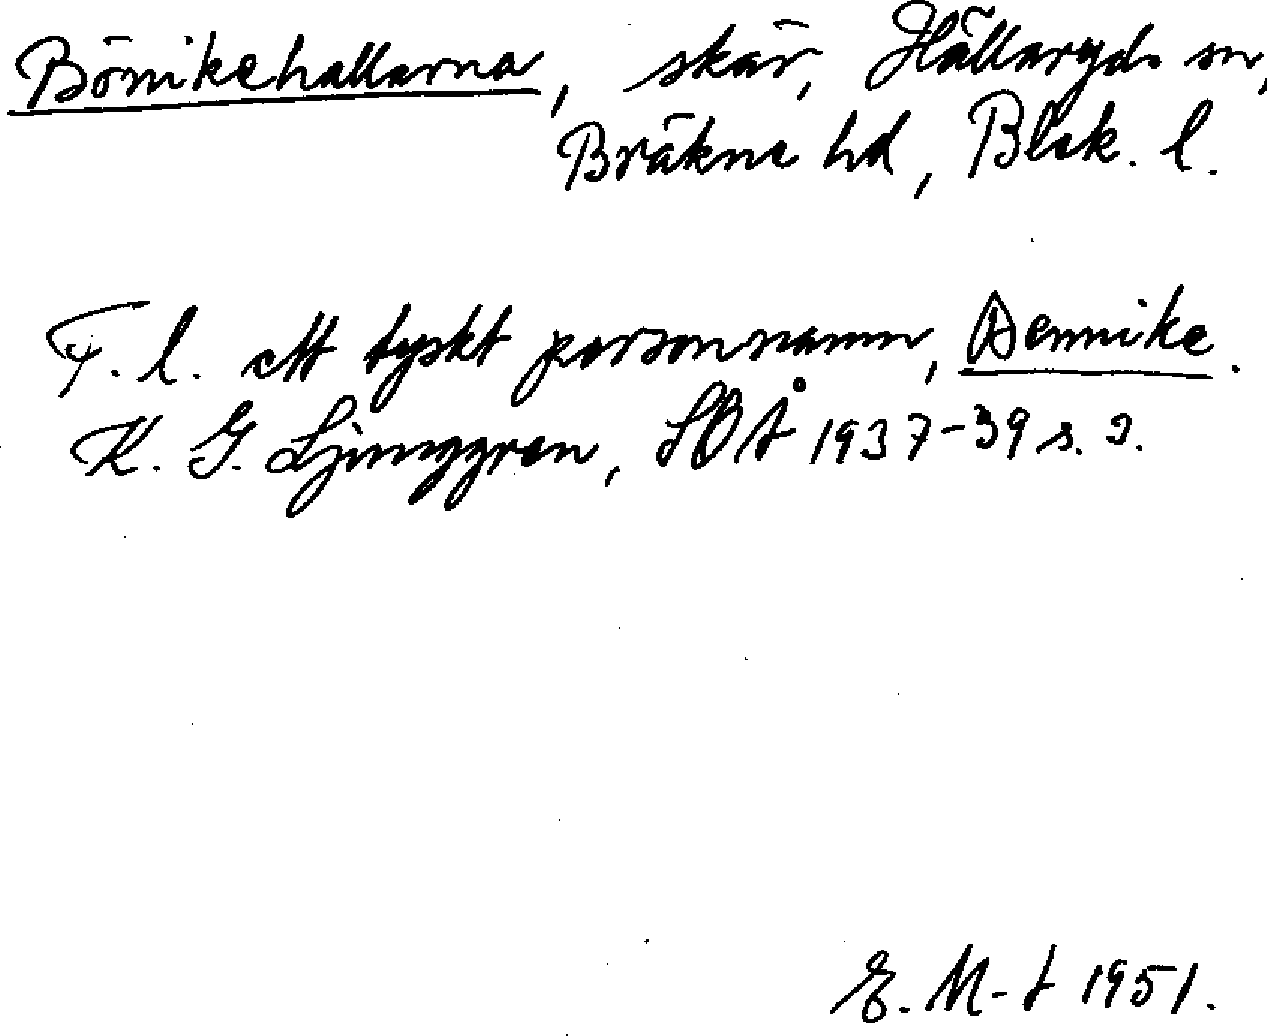 Bömikehallarna, skär, Hällaryds sn,
Bräkne hd, Blek. l.
F. l. ett tyskt personnamn, Dennike.
K. G. Ljunggren, SOÅ 1937-39 s. 9.
E. M-t 1951.